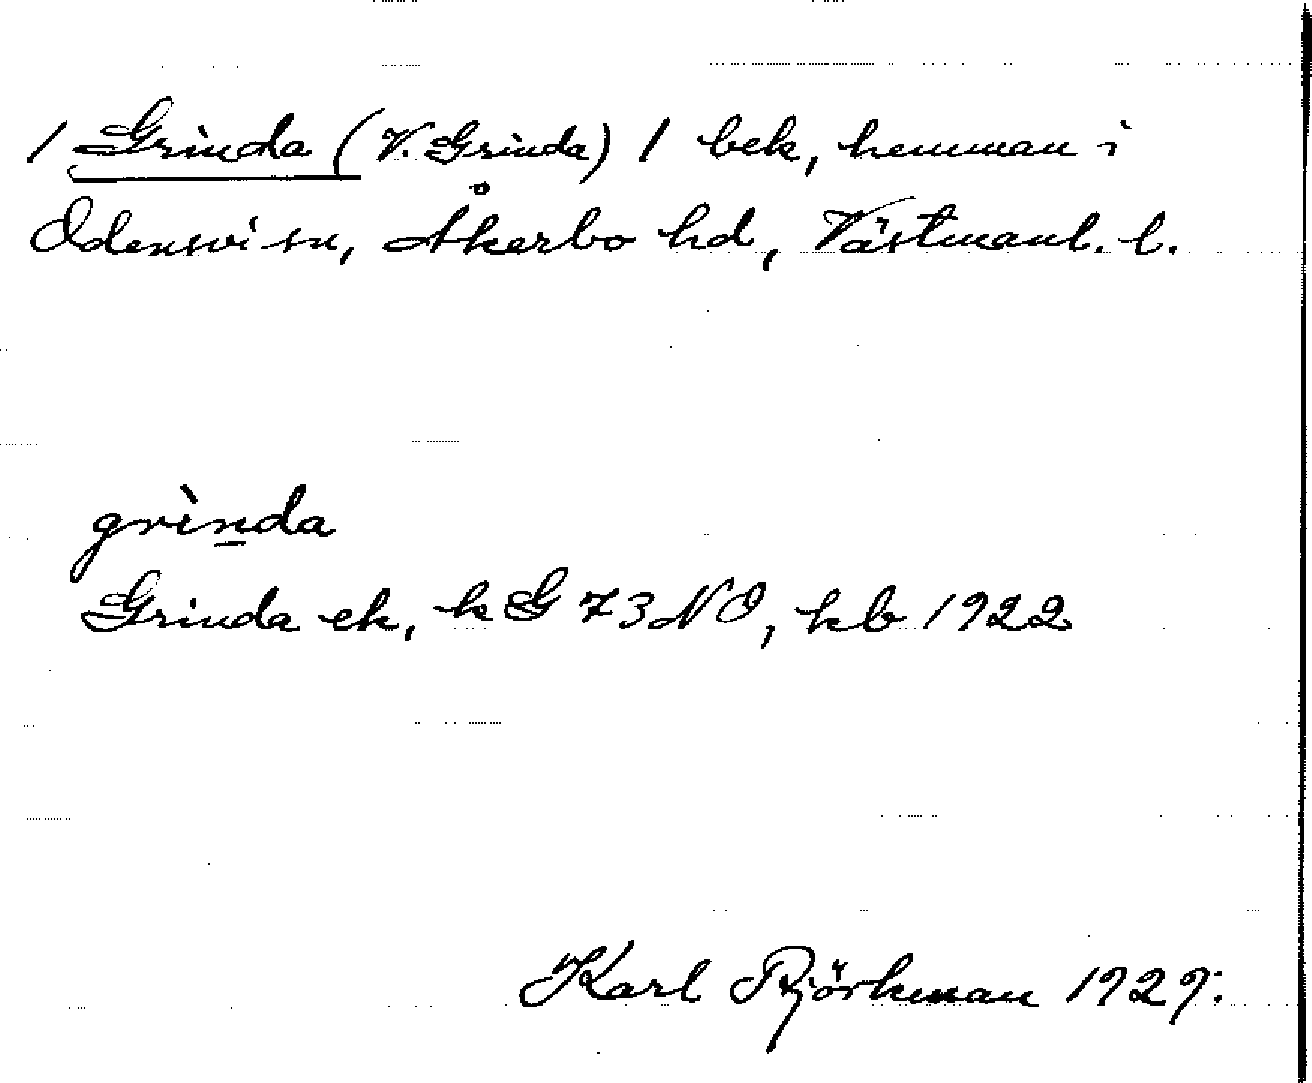 / Grinda (V. Grinda) / bek, hemman i
Odensvi sn, Åkerbo hd, Västmanl. l.
grìn̲da
Grinda ek, k G 73 NO, kb 1922
Karl Björkman 1929.